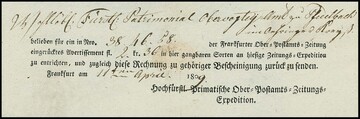 Fürstl. Patrimonial Obervogtey-Amt zu
belieben für ein in Nro. 38. 46. 58. der Frankfurter Ober-Postamts-Zeitung
eingerücktes Avertissement fl. 2 kr. 30 in hier gangbaren Sorten an hiesige Zeitungs-Expedition
zu entrichten, und zugleich diese Rechnung zu gehöriger Bescheinigung zurück zu senden.
Frankfurt am 11ten April 1809.
Hochfürstl. Primatische Ober-Postamts-Zeitungs-
Expedition.